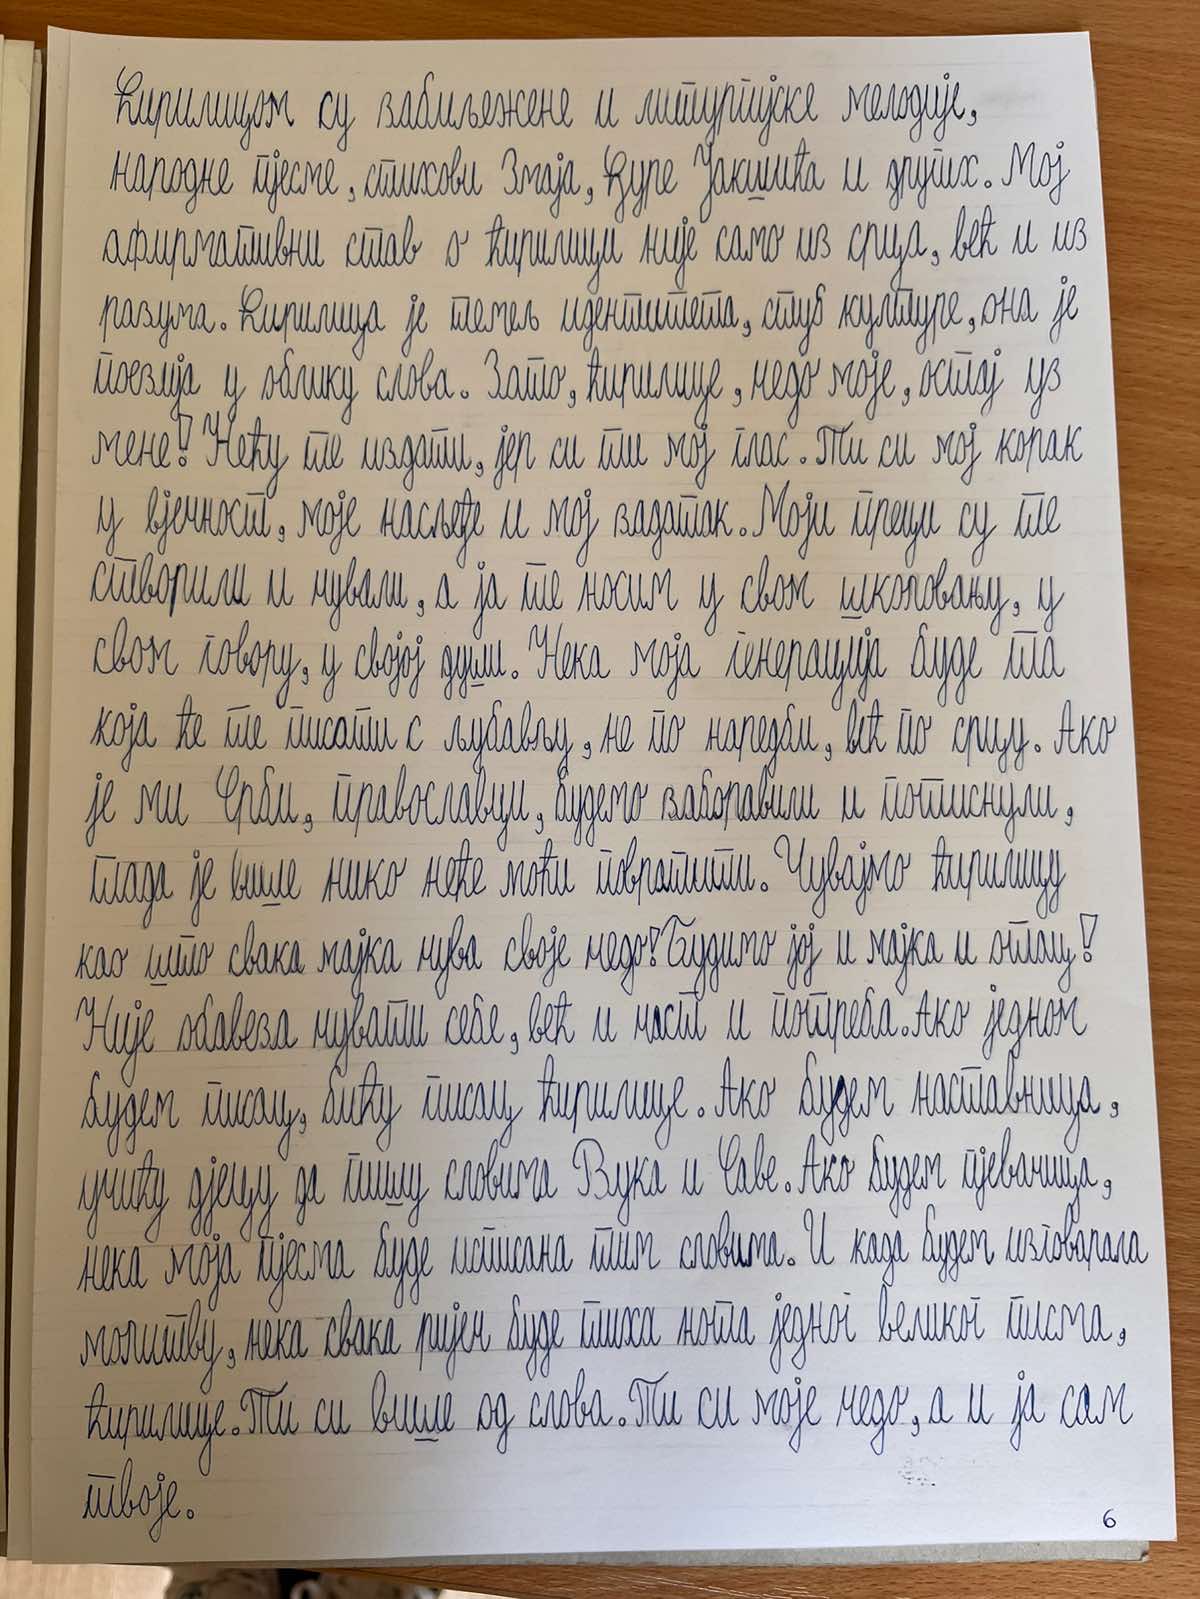 Ћирилицом су забиљежене и литургијске мелодије,
народне пјесме, стихови Змаја, Ђуре Јакшића и других. Мој
афирмативни став о ћирилици није само из срца, већ и из
разума. Ћирилица је темељ идентитета, стуб културе, она је
поезија у облику слова. Зато, ћирилице, чедо моје, остај уз
мене! Нећу те издати, јер си ти мој глас. Ти си мој корак
у вјечност, моје насљеђе и мој задатак. Моји преци су те
створили и чували, а ја те носим у свом школовању, у
свом говору, у својој души. Нека моја генерација буде та
која ће те писати с љубављу, не по наредби, већ по срцу. Ако
је ми Срби, православци, будемо заборавили и потиснули,
тада је више нико неће моћи повратити. Чувајмо ћирилицу
као што свака мајка чува своје чедо! Будимо јој и мајка и отац!
Није обавеза чувати себе, већ и част и потреба. Ако једном
будем писац, бићу писац ћирилице. Ако будем наставница,
учићу дјецу да пишу словима Вука и Саве. Ако будем пјевачица,
нека моја пјесма буде исписана тим словима. И када будем изговарала
молитву, нека свака ријеч буде тиха нота једног великог писма,
ћирилице. Ти си више од слова. Ти си моје чедо, а и ја сам
твоје.
6